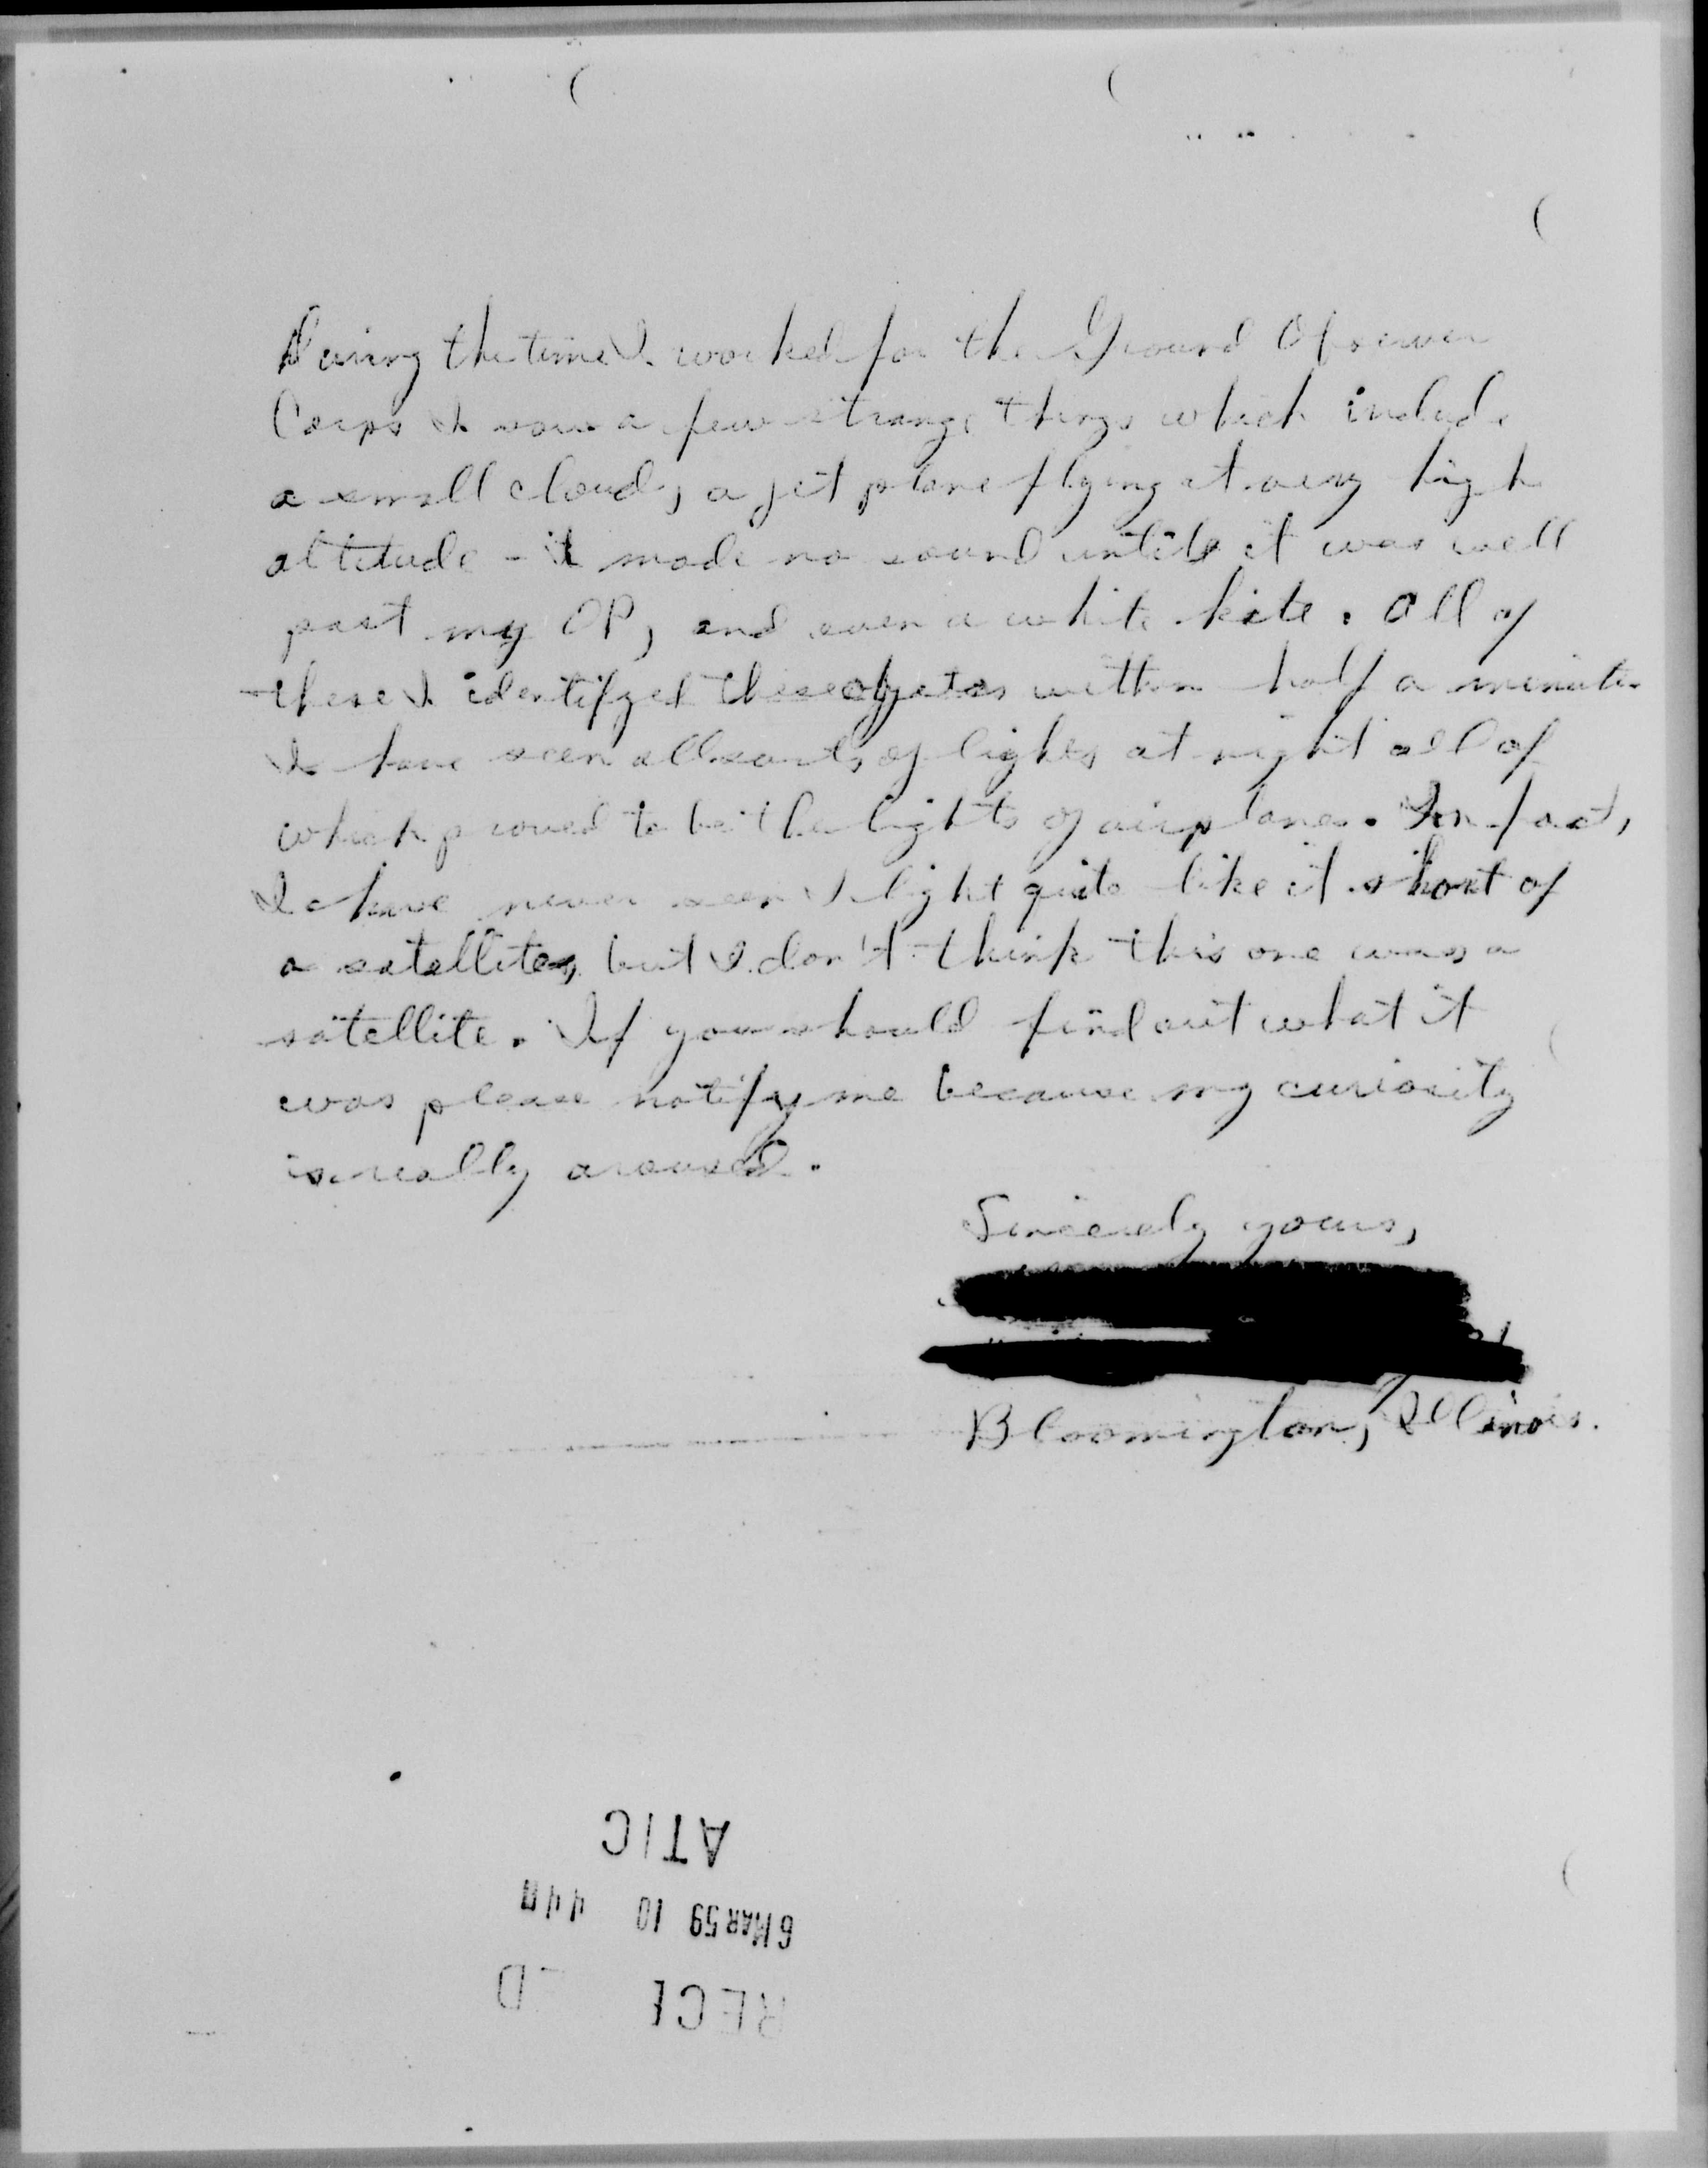 During the time I worked for the Ground Observer
Corps I saw a few strange things which include
a small cloud, a jet plane flying at very high
altitude - it made no sound until it was well
past my OP, and even a white kite. All of
these I identifyed these objects within half a minute.
I have seen all sorts of lights at night all of
which proved to be the lights of airplanes. In fact,
I have never seen a light quite like it short of
a satellite, but I don't think this one was a
satellite. If you should find out what it
was please notify me because my curiosity
is really aroused.
Sincerely yours,
Bloomington, Illinois.
ATIC
6 MAR 59 10 44
RECE D